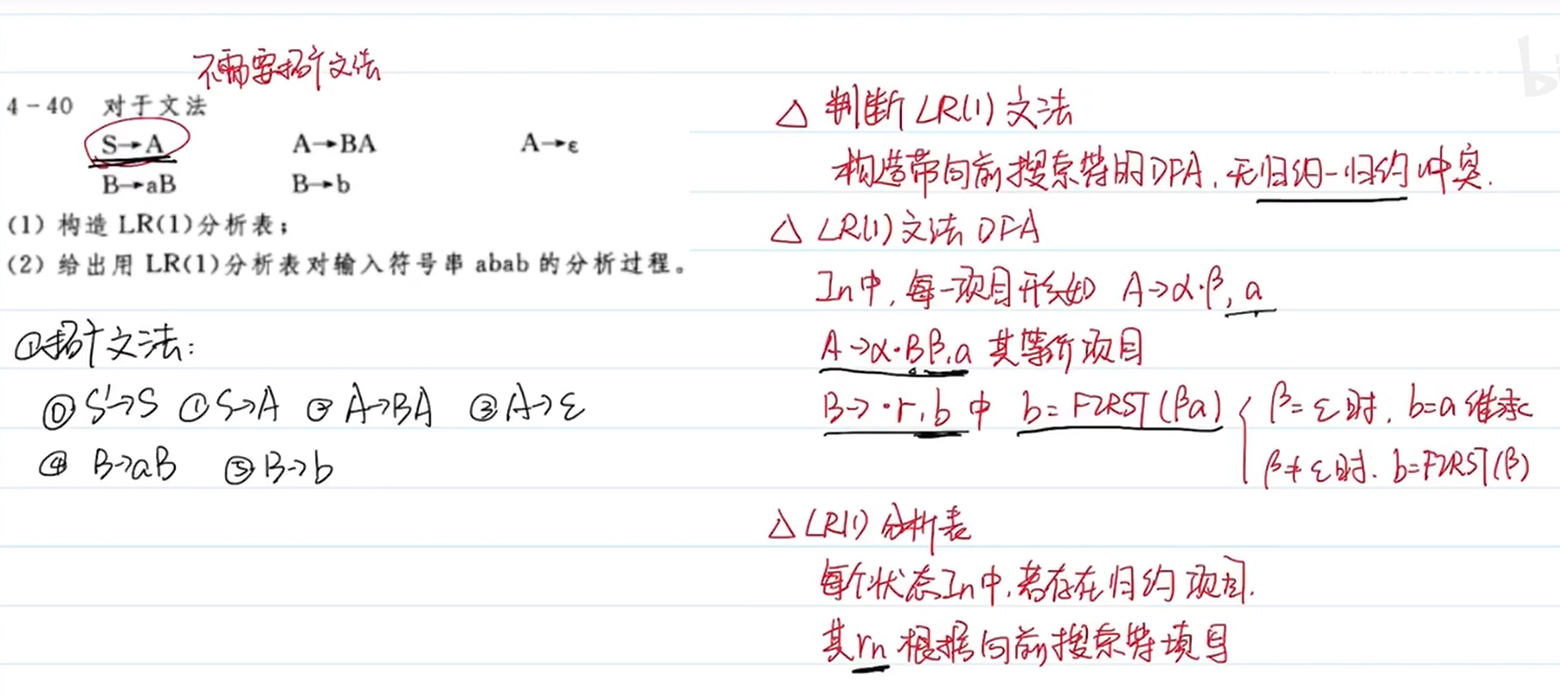 不需要拓广文法
4-40 对于文法
S→A A→BA A→ε
B→aB B→b
(1) 构造 LR(1)分析表;
(2) 给出用 LR(1)分析表对输入符号串 abab 的分析过程。
①拓广文法:
⓪ S'→S ① S→A ② A→BA ③ A→ε
④ B→aB ⑤ B→b
△ 判断 LR(1) 文法
构造带向前搜索符的DFA, 无归约-归约冲突.
△ LR(1)文法 DFA
In中, 每一项目形如 A→α·β, a
A→α·Bβ,a 其等价项目
B→·r,b 中 b=FIRST(βa) { β=ε时, b=a 继承
β≠ε时. b=FIRST(β)
△ LR(1) 分析表
每个状态In中,若存在归约项目.
其rn 根据向前搜索符填写